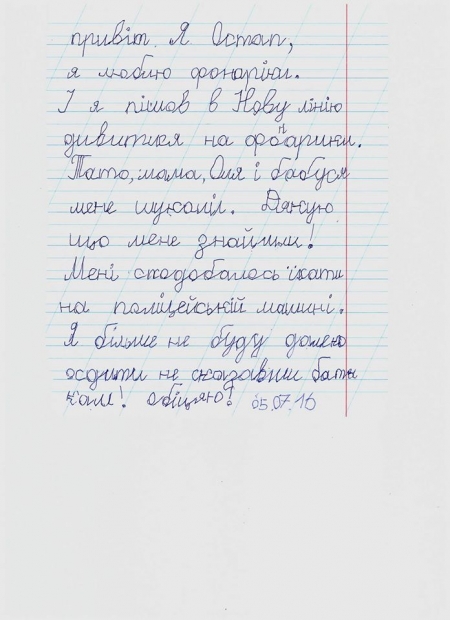 привіт. Я Остап,
я люблю фонаріки.
І я пішов в Нову лінію
дивитися на фонарики.
Тато, мама, Оля і бабуся
мене шукали. Дякую
що мене знайшли!
Мені сподобалось їхати
на поліцейській машині.
Я більше не буду далеко
ходити не сказавши бать
кам! обіцяю! 05.07.16